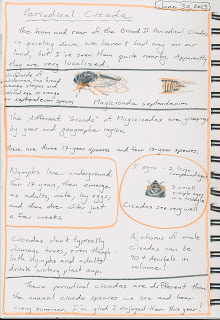 June 30, 2013
Periodical Cicada
The hum and roar of the Brood II Periodical Cicadas
is quieting down. We haven't had any on our
land, but I've seen them quite nearby. Apparently
they are very localized.
Underside of
abdomen has broad
orange stripes and
mixed in orange in
septendecim species
Magicicada septendecim
The different "broods" of Magicicadas are groupings
by year and geographic region.
There are three 17-year species and four 13-year species.
Nymphs live underground
for 17 years, then emerge
as adults, mate, lay eggs,
and then die after just
a few weeks.
5 eyes - 2 large
compound eyes
3 small
eyes
in a triangle
Cicadas see very well
Cicadas don't typically
damage trees, even though
both nymphs and adults
drink watery plant sap.
A chorus of male
Cicadas can be
90+ decibels in
volume!
These periodical cicadas are different than
the annual cicada species we see and hear
every summer. I'm glad I enjoyed them this year!